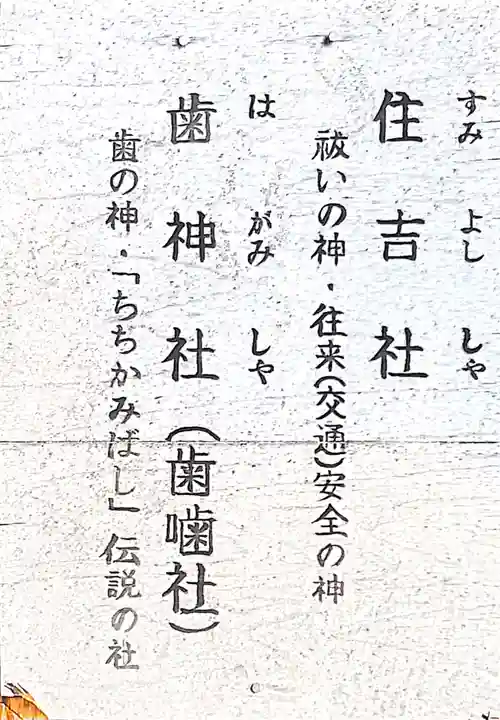 すみ よし しや
住吉社
祓いの神・往来(交通)安全の神
は がみ しや
歯神社(歯噛社)
歯の神・「ちちかみばし」伝説の社